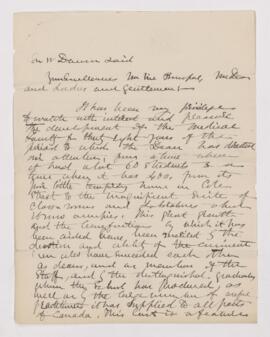 Sir Wm Dawson said
Your Excellencies Mr Vice Principal, Mr Dean
and Ladies and Gentlemen,
It has been my privilege
to watch with interest and pleasure
the development of the Medical
Faculty to that eight years of the
period to which the Dean has directed
our attention; from a time when
it had about 60 students to a
time when it has 400; from its
poor little temporary home in Cote
Street to the magnificent suite of
class rooms and laboratories which
it now occupies. This great growth
and the benefactions by which it has
been aided have been merited by the
devotion and ability of the eminent
men who have succeeded each other
as deans, and as members of the
staff, and by the distinguished graduates
whom the School has produced, as
well as by the large number of useful
practitioners it has supplied to all parts
of Canada. This last is a feature